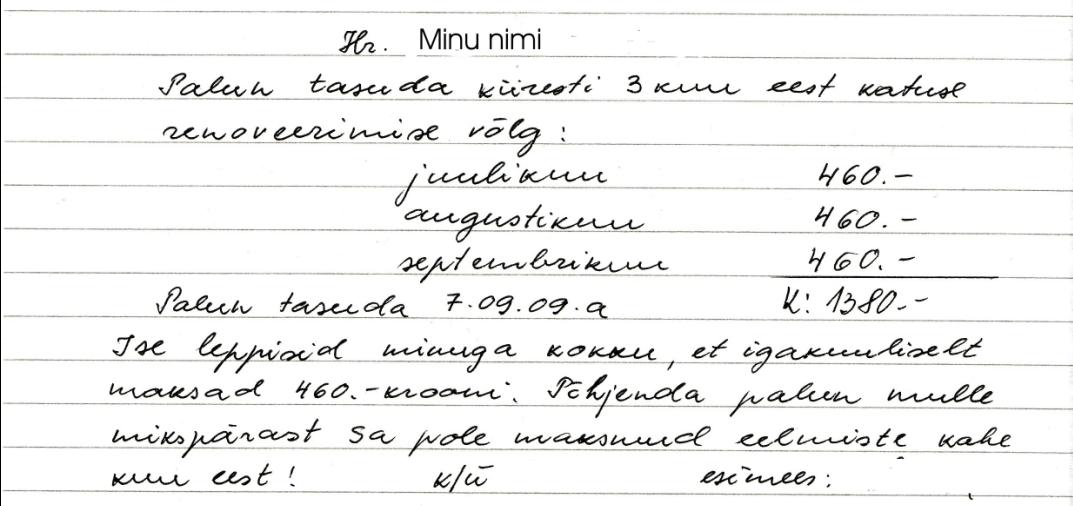 Hr. Minu nimi
Palun tasuda kiiresti 3 kuu eest katuse
renoveerimise võlg:
juulikuu 460.-
augustikuu 460.-
septembrikuu 460.-
Palun tasuda 7.09.09.a K: 1380.-
Ise leppisid minuga kokku, et igakuuliselt
maksad 460.-krooni. Põhjenda palun mulle
mikspärast sa pole maksnud eelmiste kahe
kuu eest! k/ü esimees: